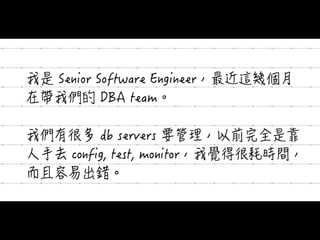 我是 Senior Software Engineer，最近這幾個月
在帶我們的 DBA team。
我們有很多 db servers 要管理，以前完全是靠
人手去 config, test, monitor，我覺得很耗時間，
而且容易出錯。